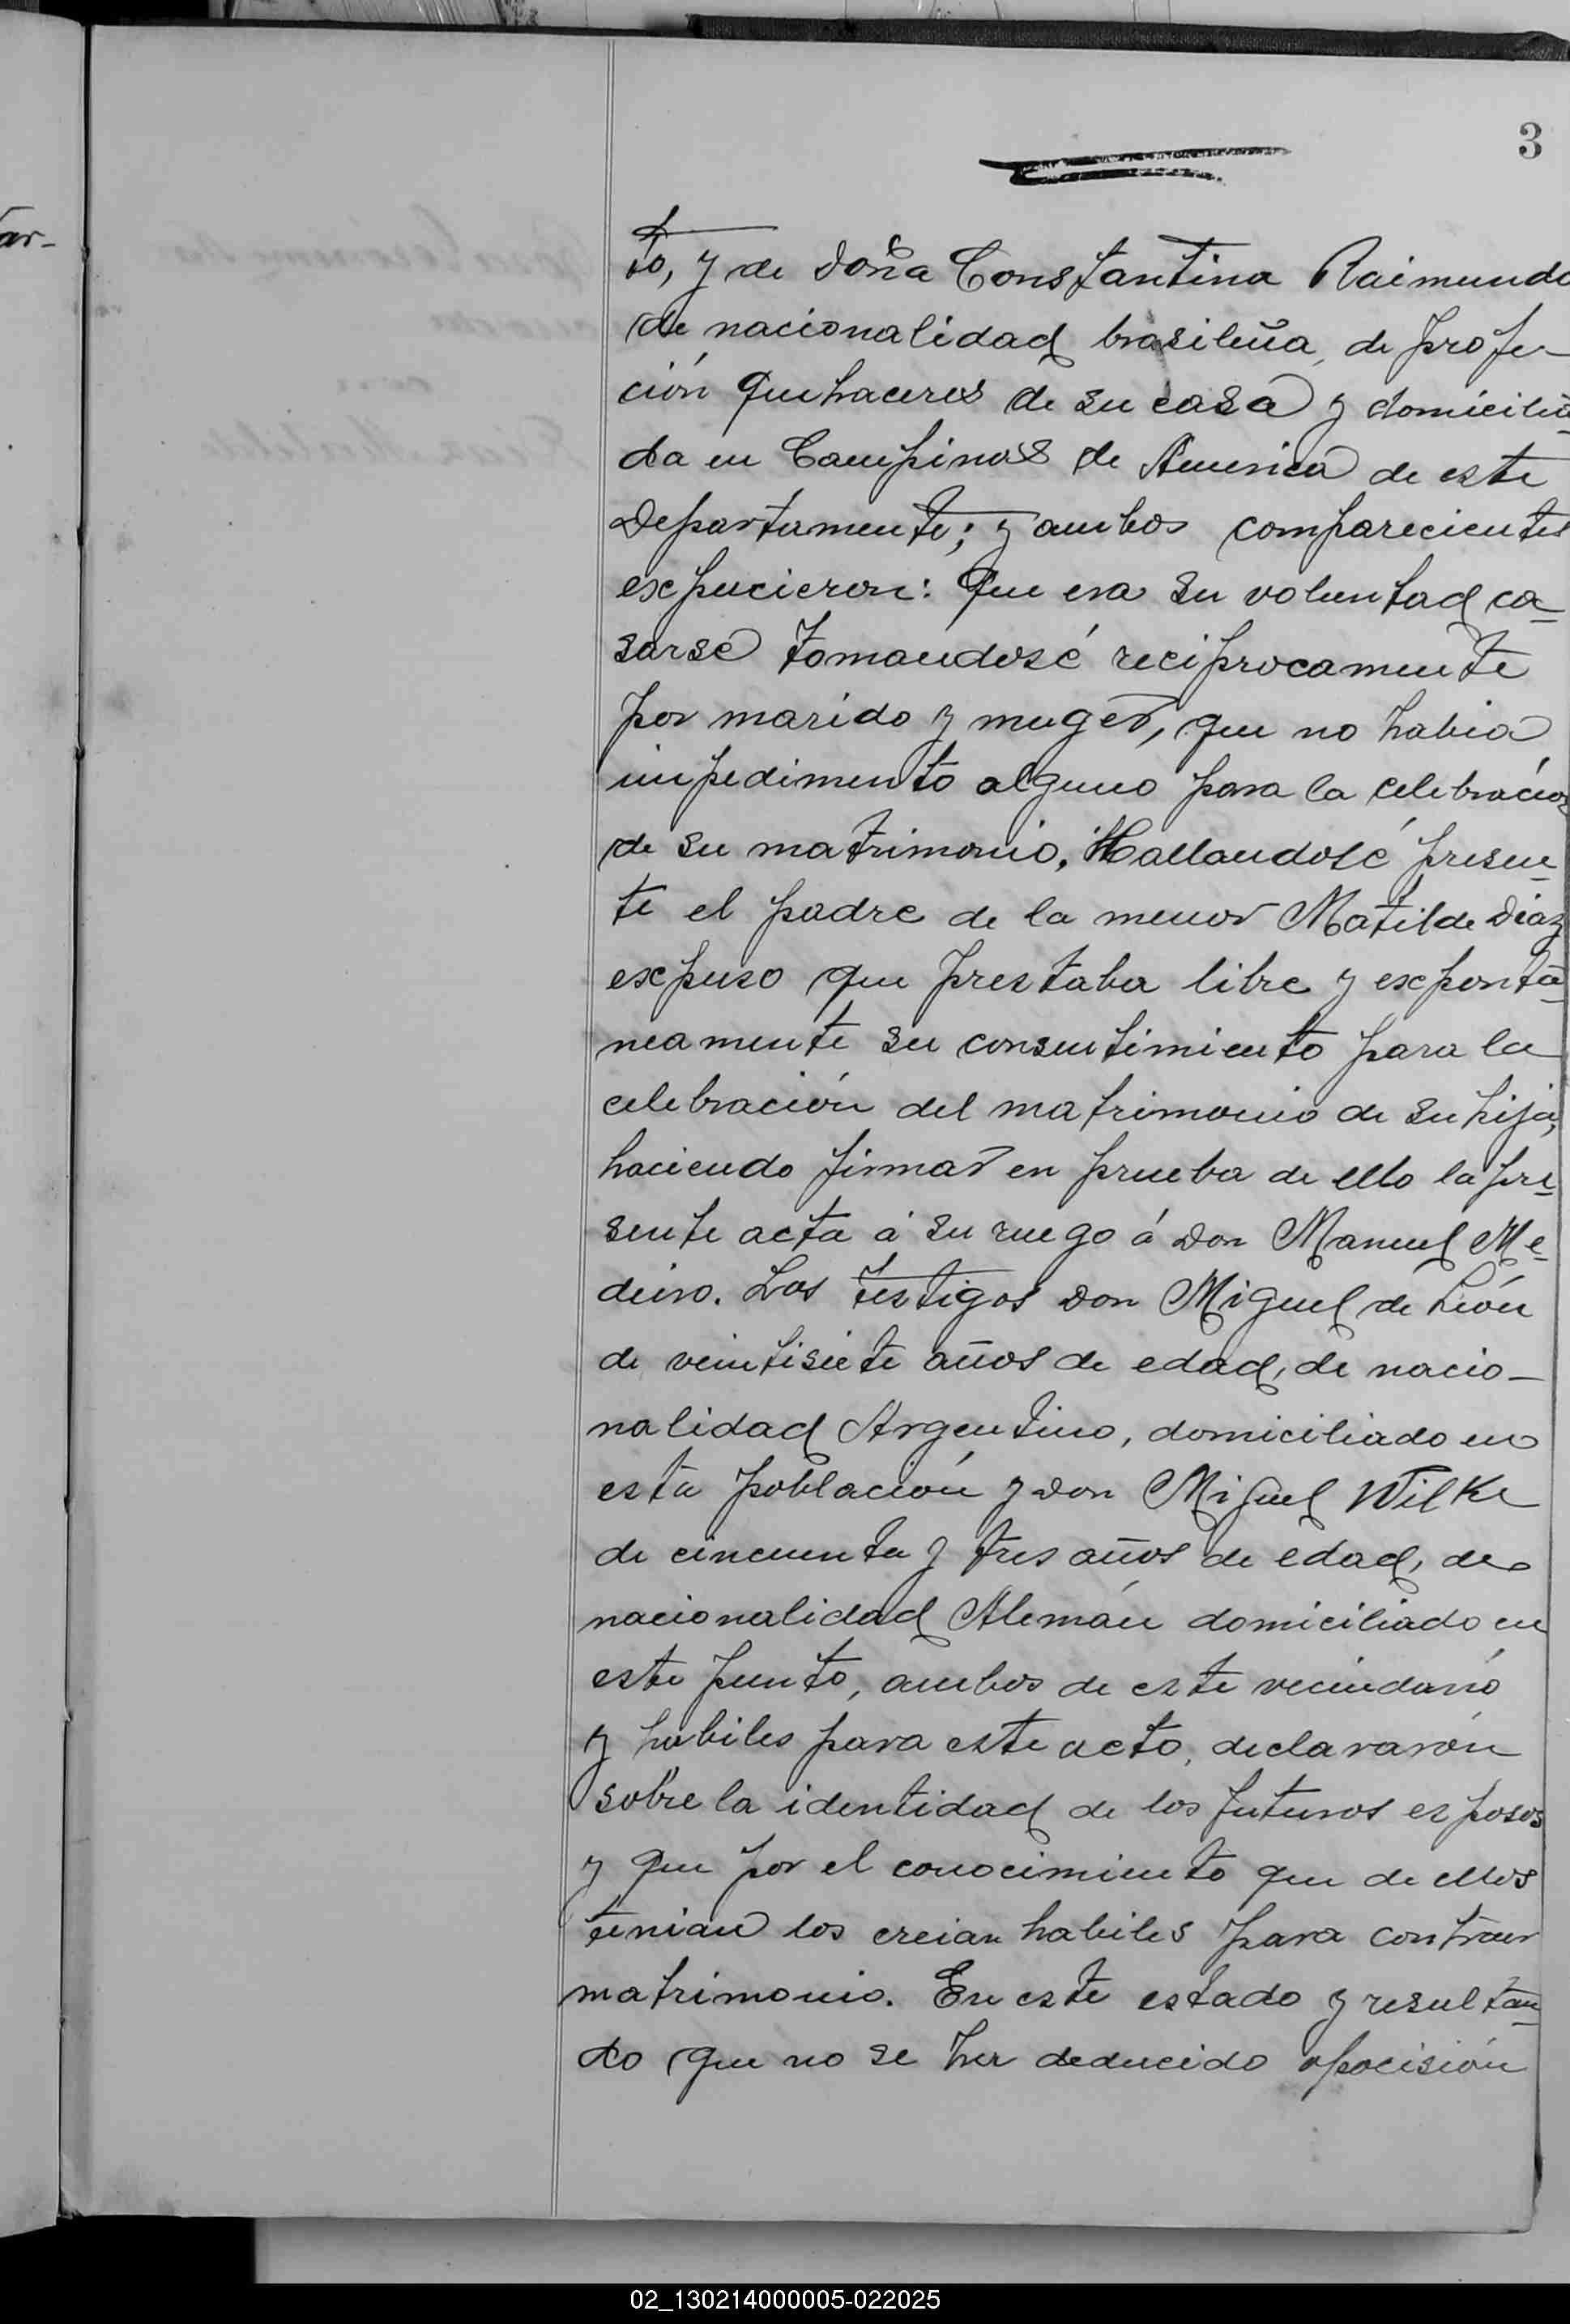 3
ar-
to, y de doña Constantina Raimundo
de nacionalidad brasileña, de profe-
ción quehaceres de su casa y domicilia-
da en Campinas de America de este
Departamento; y ambos comparecientes
expucieron: Que era su voluntad ca-
sarse tomandosé reciprocamente
por marido y muger, que no habia
impedimento alguno para la celebración
de su matrimonio, Hallandosé presen-
te el padre de la menor Matilde Diaz
expuso que prestaba libre y exponta-
neamente su consentimiento para la
celebración del matrimonio de su hija,
haciendo firmar en prueba de ello la pre-
sente acta á su ruego á Don Manuel Me-
dina. Los testigos Don Miguel de León
de veintisiete años de edad, de nacio-
nalidad Argentino, domiciliado en
esta población y Don Miguel Wilke
de cincuenta y tres años de edad, de
nacionalidad Alemán domiciliado en
este punto, ambos de este vecindario
y habiles para este acto, declararón
sobre la identidad de los futuros esposos
y que por el conocimiento que de ellos
tenian los creian habiles para contraer
matrimonio. En este estado y resultan-
do que no se ha deducido opocisión
02_130214000005-022025